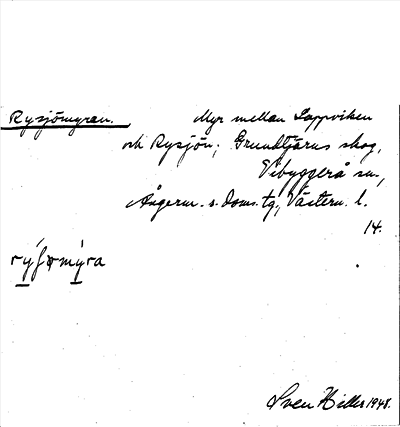 Rysjömyran. Myr mellan Lappviken
och Rysjön; Grundtjärns skog,
Vibyggerå sn,
Ångerm. s. doms. tg, Västern. l.
14.
Sven Hiller 1948.